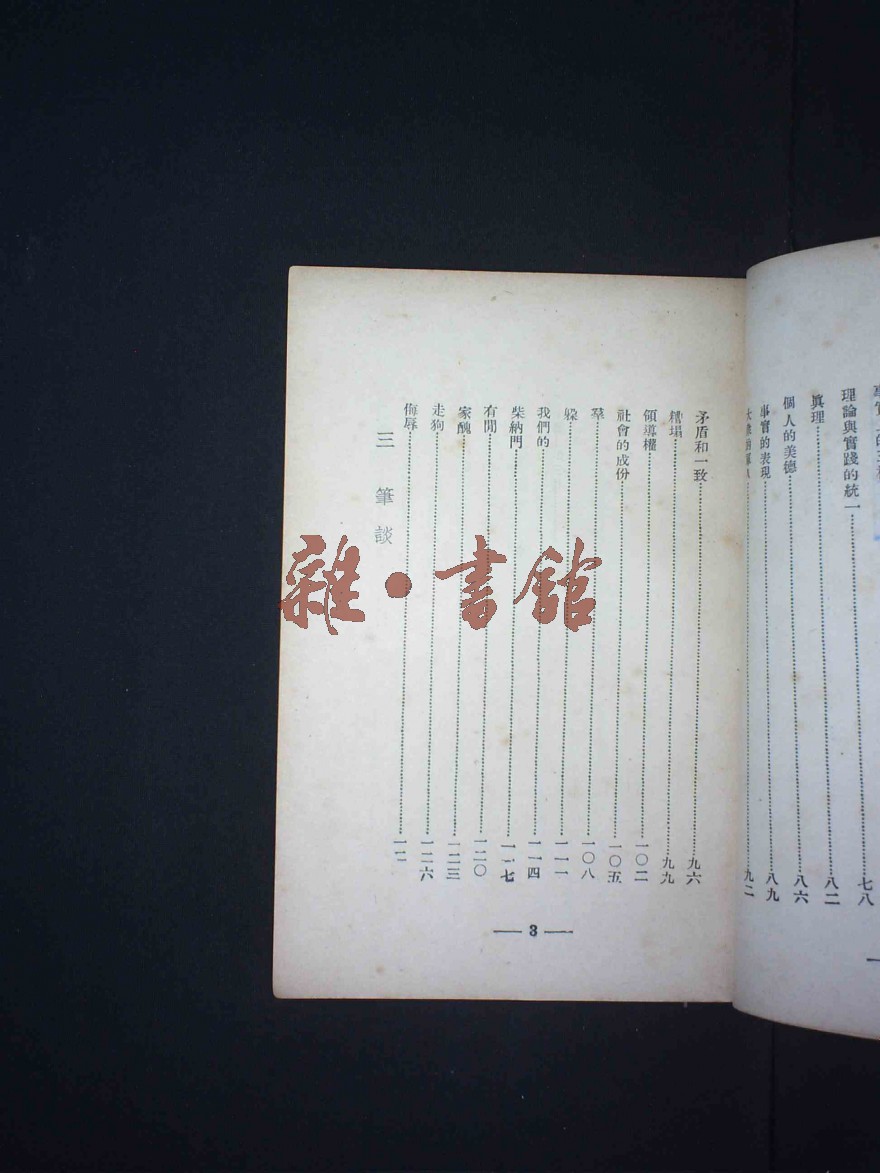 理論與實踐的統一……七八
眞理……八二
個人的美德……八六
事實的表現……八九
九二
矛盾和一致……九六
糟塌……九九
領導權……一〇二
社會的成份……一〇五
羣……一〇八
躱……一一一
我們的……一一四
柴納門……一一七
有閒……一二〇
家醜……一二三
走狗……一二六
侮辱……
三 筆談
— 3 —
雜·書館